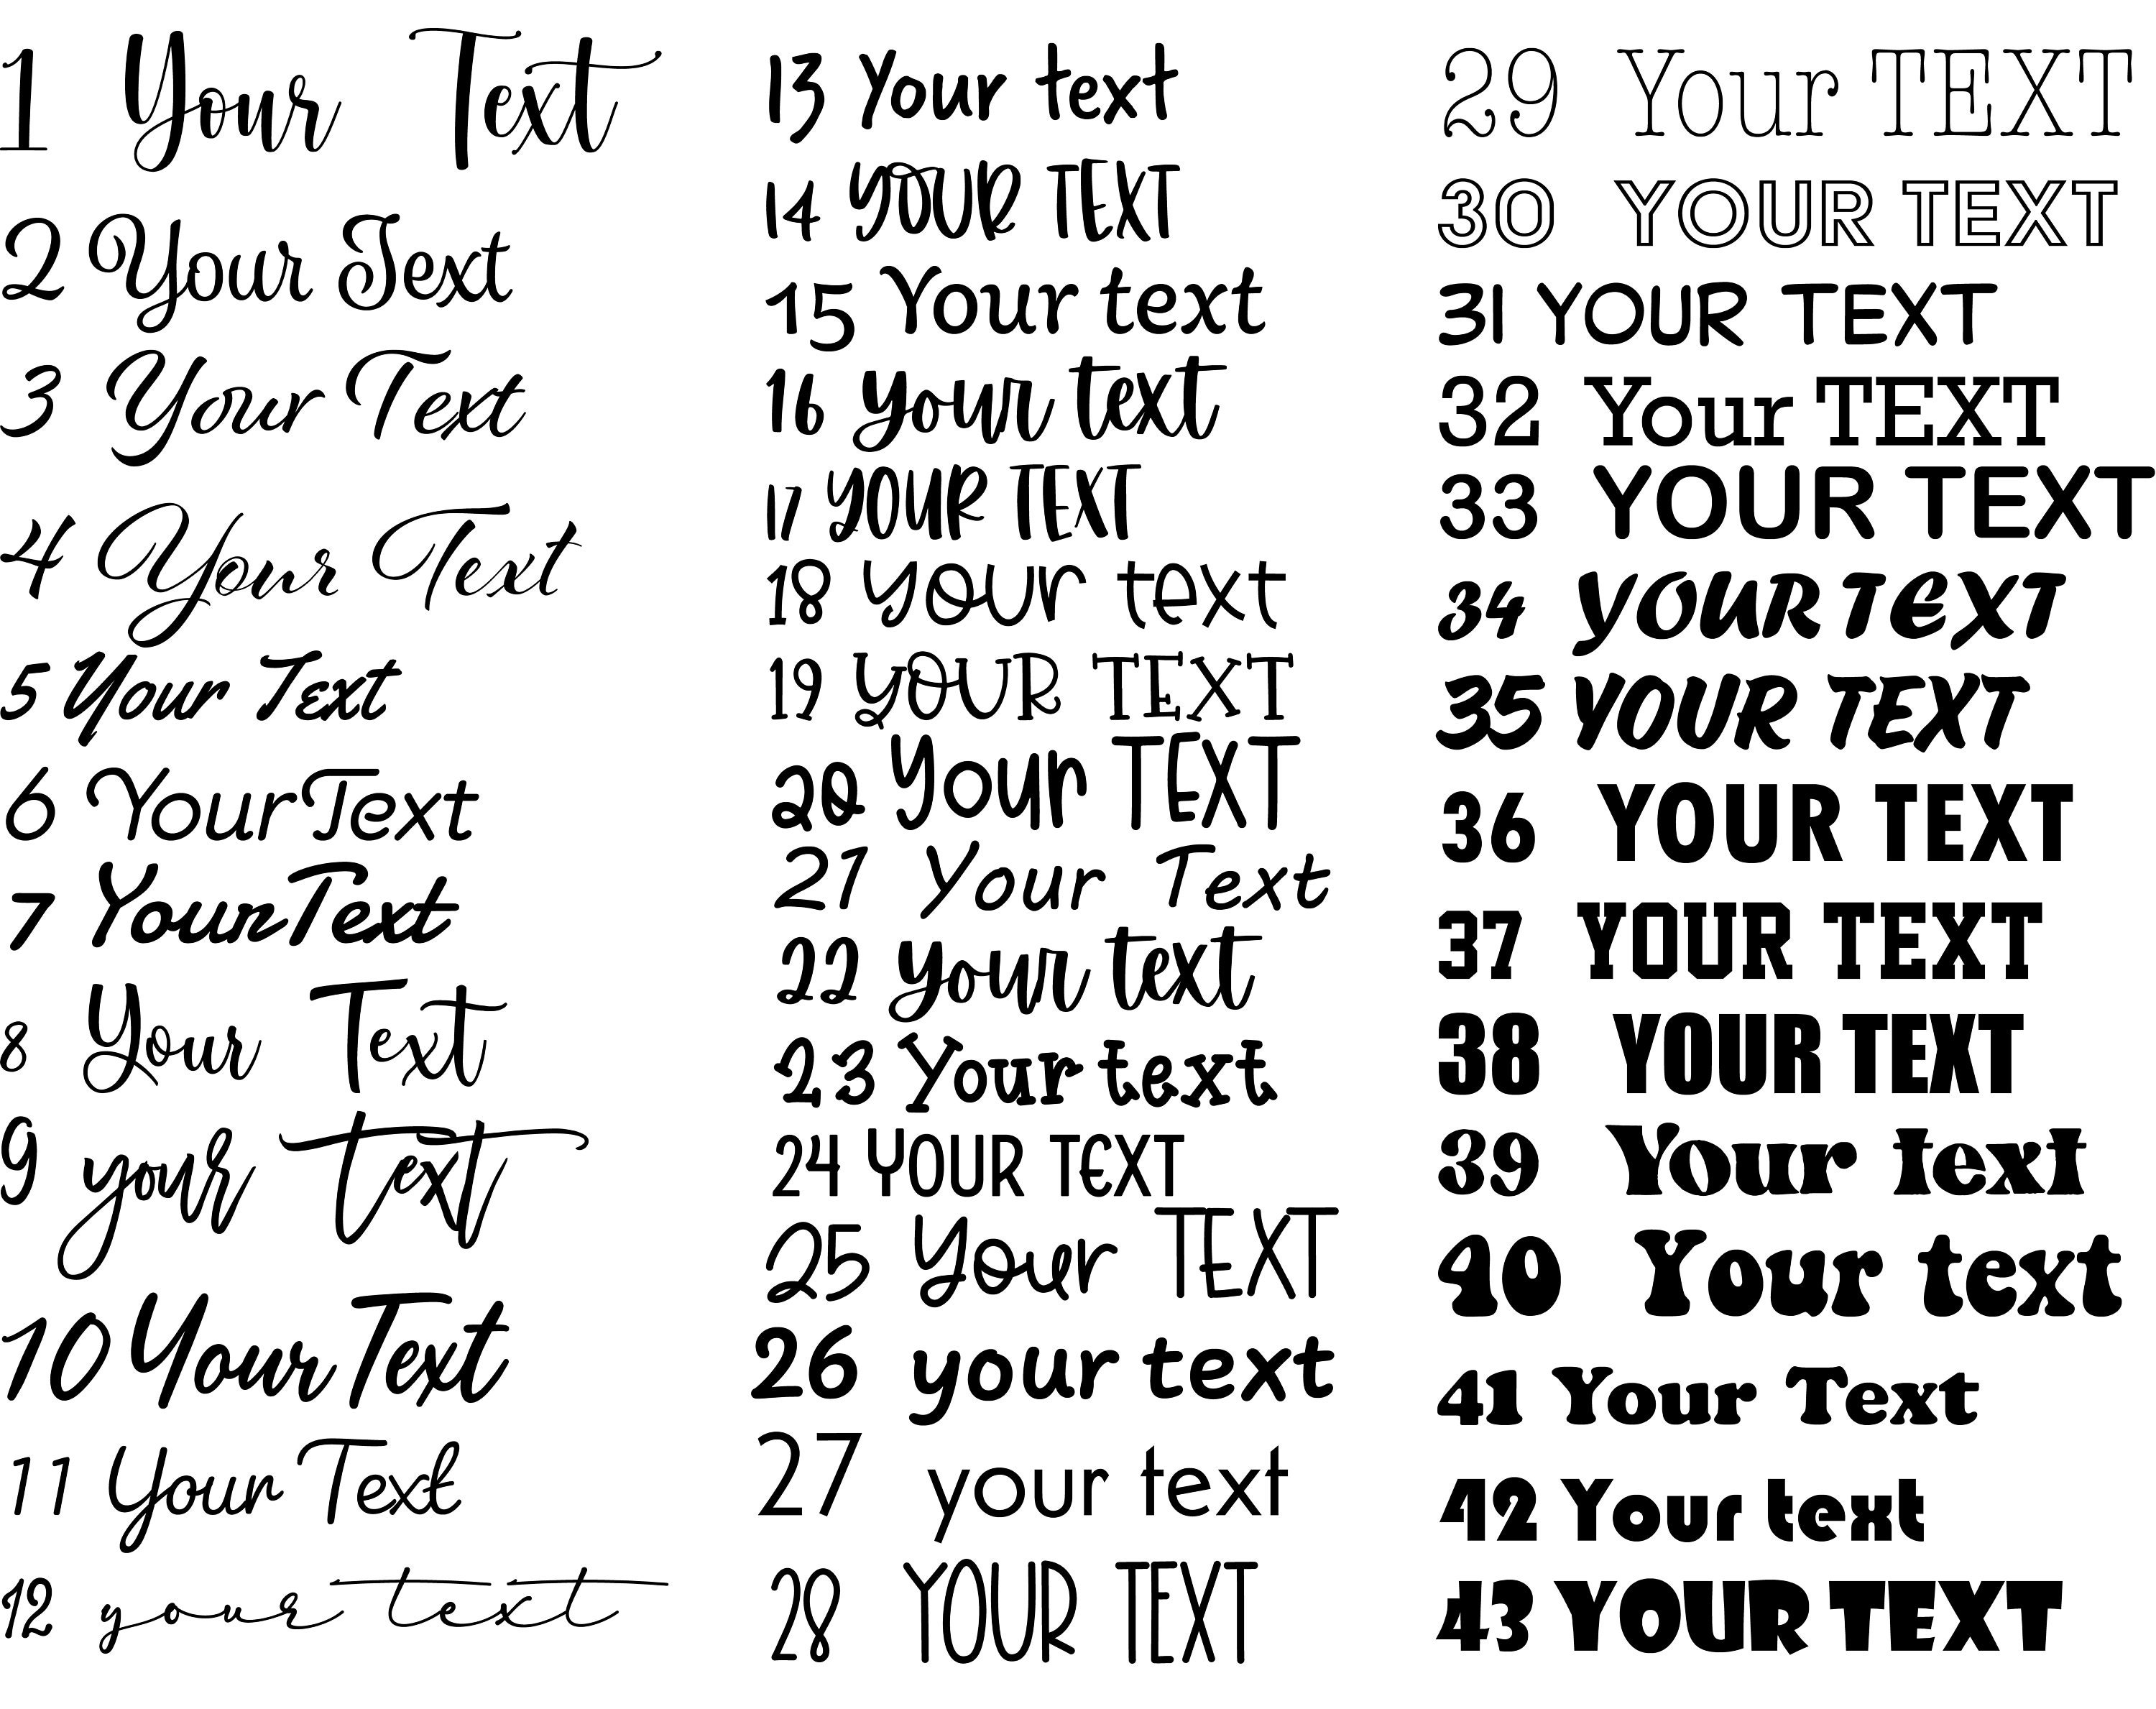 1 Your Text
2 Your Text
3 Your Text
4 Your Text
5 Your Text
6 Your Text
7 Your Text
8 Your Text
9 your text
10 Your Text
11 Your Text
12 your text
13 Your text
14 YOUR TEXT
15 Your text
16 your text
17 YOUR TEXT
18 your text
19 YOUR TEXT
20 Your TEXT
21 Your Text
22 your text
23 Your text
24 YOUR TEXT
25 Your TEXT
26 your text
27 your text
28 YOUR TEXT
29 Your TEXT
30 YOUR TEXT
31 YOUR TEXT
32 Your TEXT
33 YOUR TEXT
34 YOUR TEXT
35 YOUR TEXT
36 YOUR TEXT
37 YOUR TEXT
38 YOUR TEXT
39 Your text
40 Your text
41 Your Text
42 Your text
43 YOUR TEXT